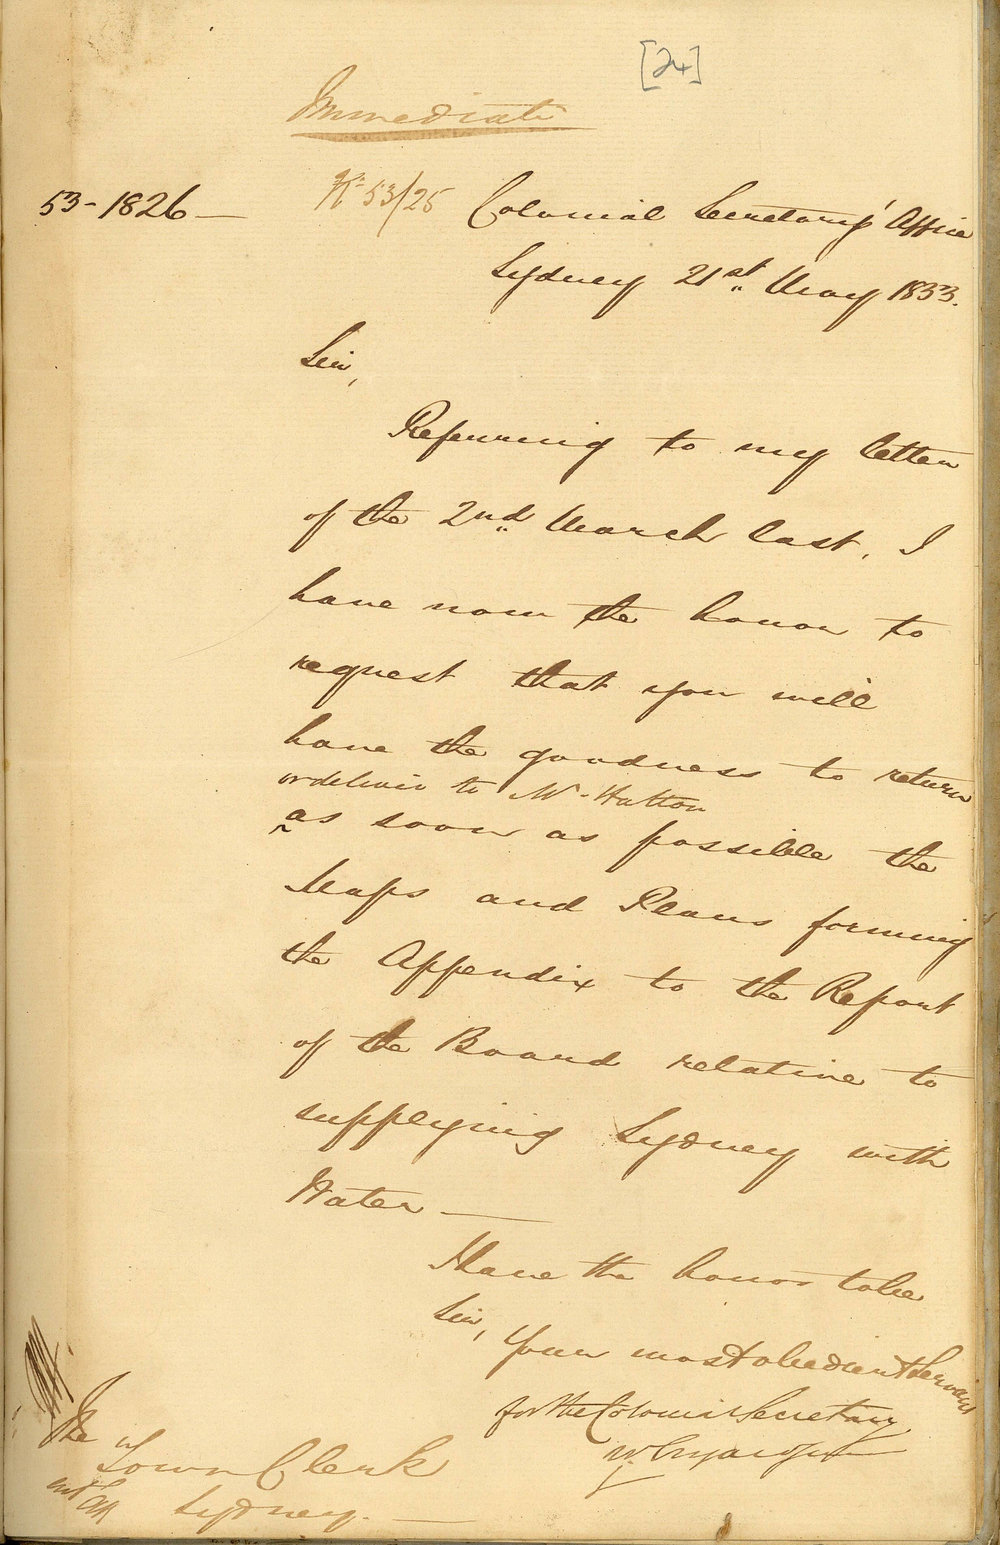 [24]
Immediate
53-1826 —
No 53/25 Colonial Secretary's Office
Sydney 21st May 1853.
Sir,
Referring to my letter
of the 2nd March last, I
have now the honor to
request that you will
have the goodness to return
or deliver to Mr Hutton
^ as soon as possible the
Maps and Plans forming
the Appendix to the Report
of the Board relative to
supplying Sydney with
Water —
I have the honor to be
Sir,
Your most obedient Servant
for the Colonial Secretary
W.
The
Town Clerk
Sydney. —